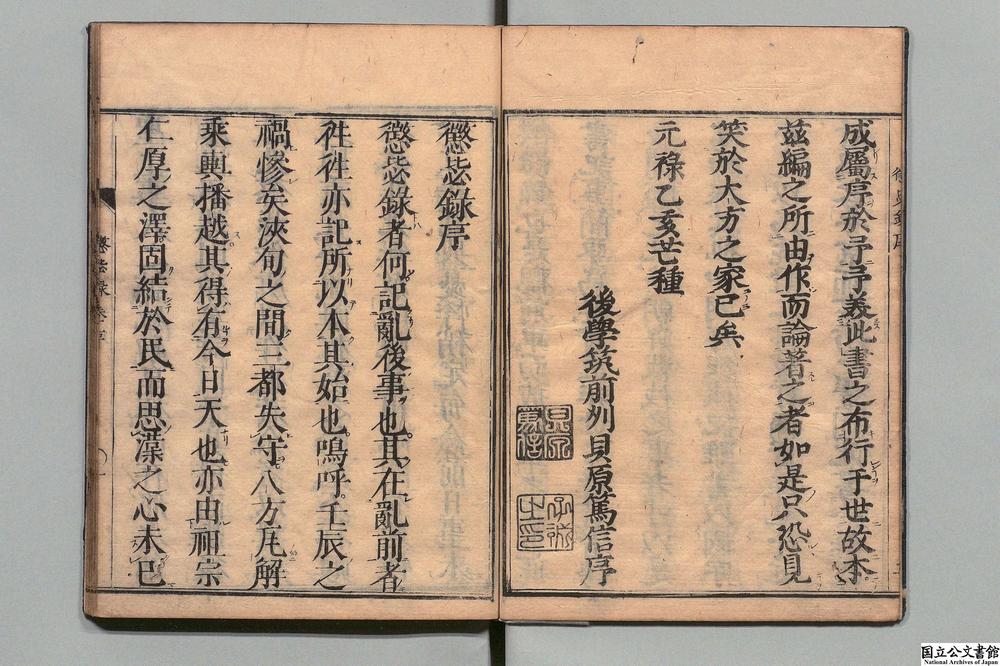 成屬序於予予羨此書之布行于世故本
茲編之所由作而論著之者如是只恐見
笑於大方之家已矣
元祿乙亥芒種
後學筑前州貝原篤信序
懲毖錄序
懲毖錄者何記亂後事也其在亂前者
徃徃亦記所以本其始也嗚呼壬辰之
禍慘矣浹旬之間三都失守八方瓦解
乘輿播越其得有今日天也亦由祖宗
仁厚之澤固結於民而思漢之心未已
国立公文書館
National Archives of Japan